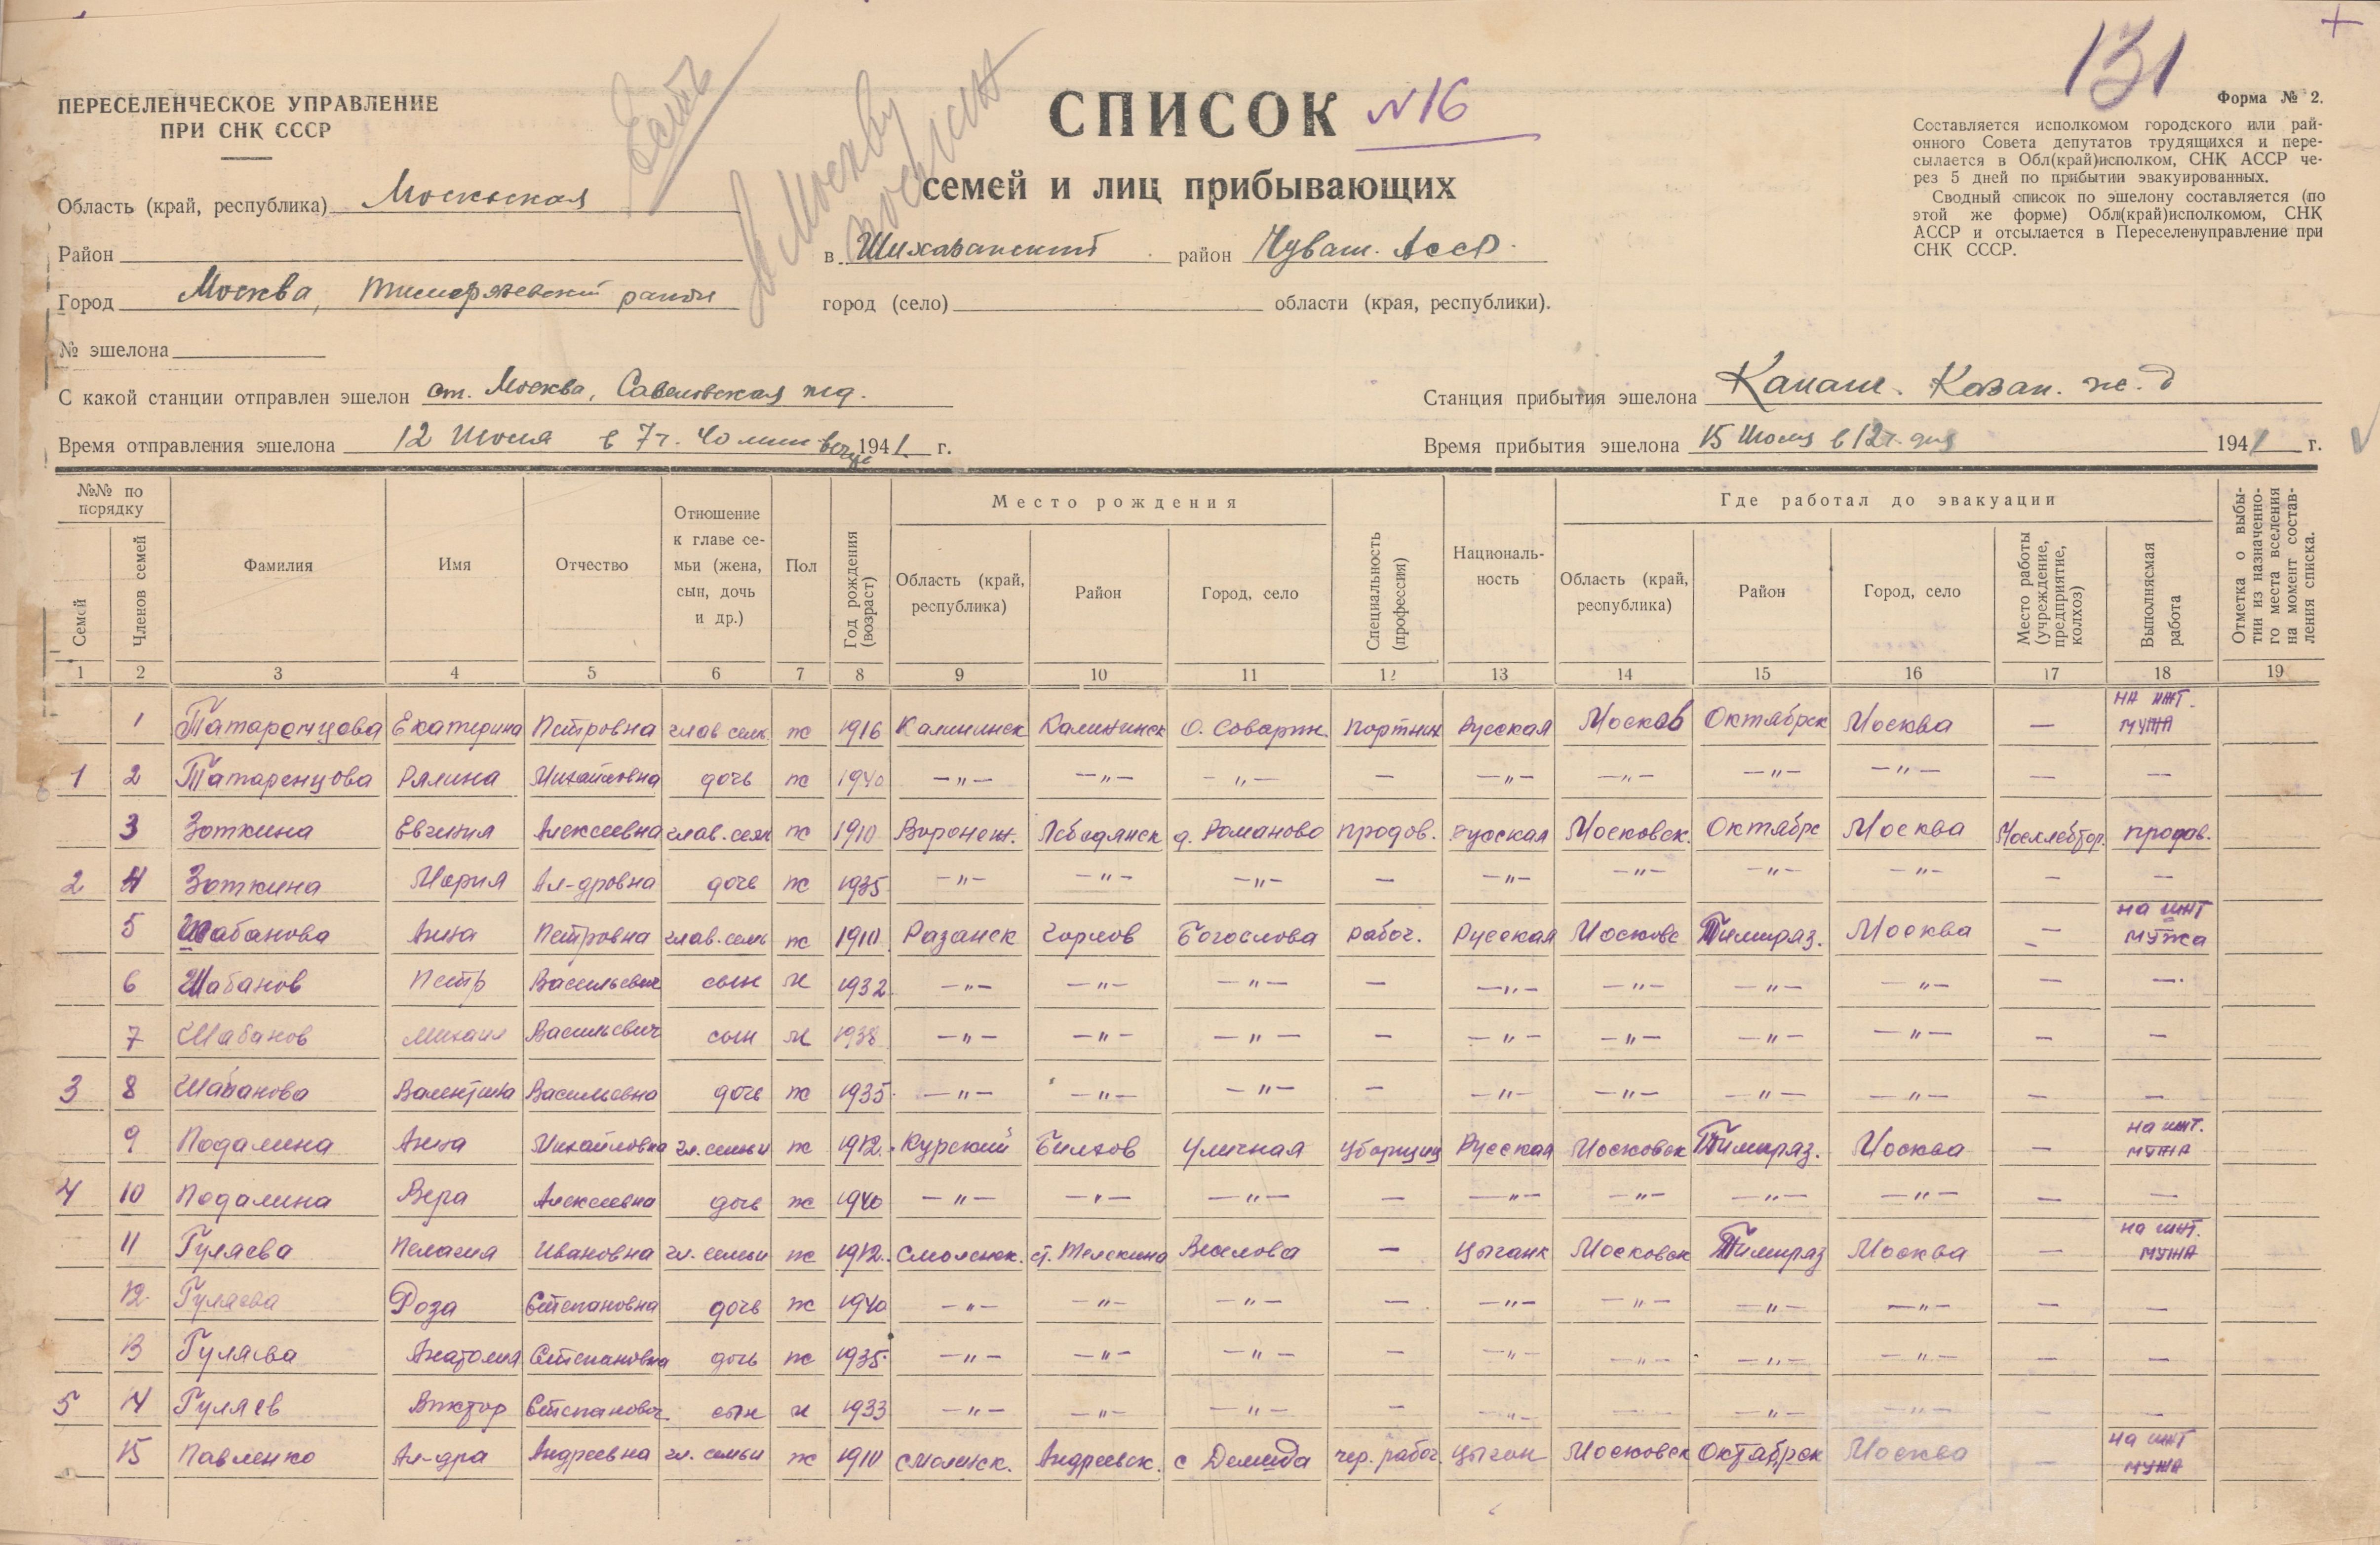 131
ПЕРЕСЕЛЕНЧЕСКОЕ УПРАВЛЕНИЕ
ПРИ СНК СССР
Есть
В Москву
послан
СПИСОК №16
семей и лиц прибывающих
Форма № 2.
Составляется исполкомом городского или рай-
онного Совета депутатов трудящихся и пере-
сылается в Обл(край)исполком, СНК АССР че-
рез 5 дней по прибытии эвакуированных.
Сводный список по эшелону составляется (по
этой же форме) Обл(край)исполкомом, СНК
АССР и отсылается в Переселенуправление при
СНК СССР.
Область (край, республика) Московская
Район
в Шихазанский район Чуваш. АССР.
Город Москва, Тимирязевский район
город (село) области (края, республики).
№ эшелона
С какой станции отправлен эшелон ст. Москва, Савеловская жд.
Станция прибытия эшелона Канаш. Казан. ж. д
Время отправления эшелона 12 Июля в 7 ч. 40 мин вечера 1941 г.
Время прибытия эшелона 15 Июля в 12 ч. дня 1941 г.
№№ по порядку
Семей
Членов семей
Фамилия
Имя
Отчество
Отношение к главе се-
мьи (жена, сын, дочь и др.)
Пол
Год рождения (возраст)
Место рождения
Область (край, республика)
Район
Город, село
Специальность (профессия)
Националь-
ность
Где работал до эвакуации
Область (край, республика)
Район
Город, село
Место работы (учреждение, предприятие, колхоз)
Выполняемая работа
Отметка о выбы-
тии из назначенно-
го места вселения
на момент состав-
ления списка.
1 2 3 4 5 6 7 8 9 10 11 12 13 14 15 16 17 18 19
1 Татаренцова Екатерина Петровна глав семь ж 1916 Калининск Калининск Портних Русская Москов Октябрск Москва — на ижт. мужа
1 2 Татаренцова Римина Михайловна дочь ж 1940 —"— —"— —"— — —"— —"— —"— —"— — —
3 Зоткина Евгения Алексеевна глав. семь ж 1910 Воронеж. Лебедянск д. Романово продов. русская Московск. Октябрс Москва Мосхлебторг. продав.
2 4 Зоткина Мария Ал-дровна дочь ж 1935 —"— —"— —"— — —"— —"— —"— —"— — —
5 Шабанова Анна Петровна глав. семь ж 1910 Разанск Горлов Богослова рабоч. Русская Московс Тимиряз. Москва — на ижт мужа
6 Шабанов Петр Васильевич сын м 1932 —"— —"— —"— — —"— —"— —"— —"— — —
7 Шабанов Михаил Васильевич сын м 1938 —"— —"— —"— — —"— —"— —"— —"— — —
3 8 Шабанова Валентина Васильевна дочь ж 1935 —"— —"— —"— — —"— —"— —"— —"— — —
9 Подалина Анна Михайловна гл. семьи ж 1912. Курский Уличная уборщиц Русская Московск Тимиряз. Москва — на ижт. мужа
4 10 Подалина Вера Алексеевна дочь ж 1940 —"— —"— —"— — —"— —"— —"— —"— — —
11 Гуляева Пелагея Ивановна гл. семьи ж 1912. Смоленск. Веселова — Цыганк Московск Тимиряз Москва — на ижт. мужа
12 Гуляева Роза Степановна дочь ж 1940 —"— —"— —"— — —"— —"— —"— —"— — —
13 Гуляева Анатолия Степановна дочь ж 1935 —"— —"— —"— — —"— —"— —"— —"— — —
5 14 Гуляев Виктор Степанович сын м 1933 —"— —"— —"— — —"— — —"— —"— — —
15 Павленко Ал-дра Андреевна гл. семьи ж 1910 Смоленск. Андреевск. с Демида чер. рабоч. цыган Московск Октябрск Москва — на ижт мужа